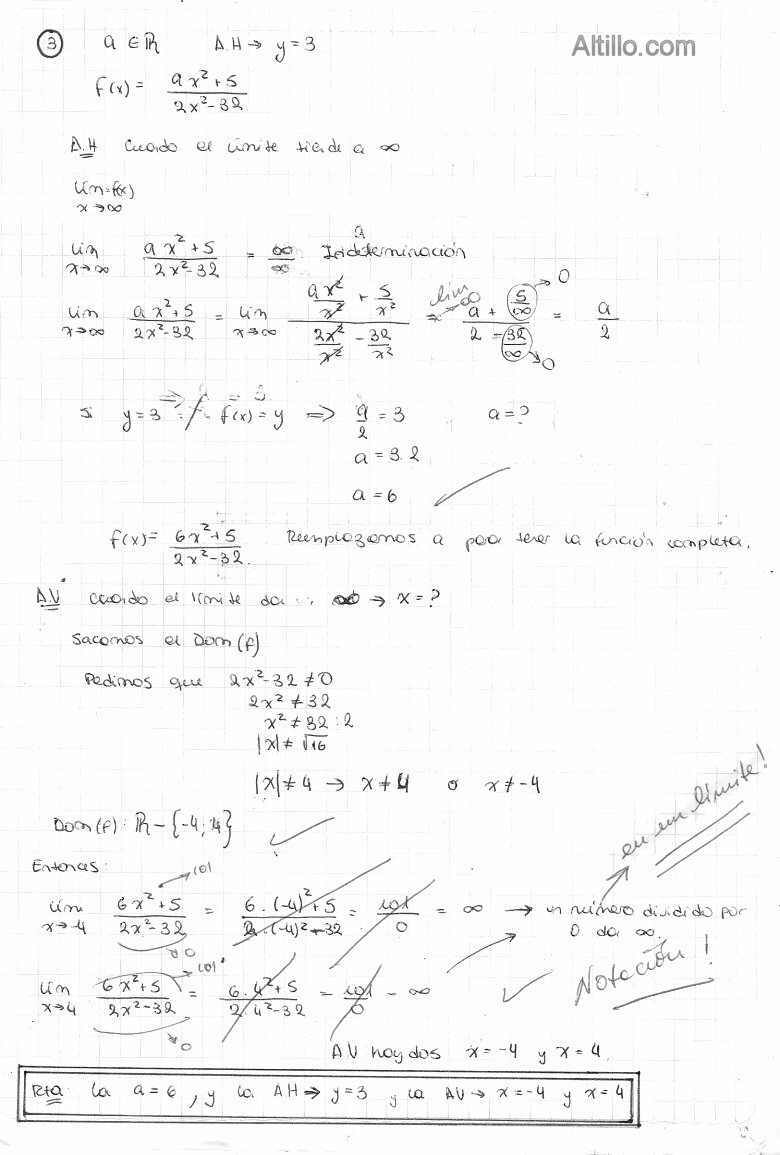 3 a ∈ ℝ A.H → y = 3
Altillo.com
f(x) = (ax² + 5)/(2x² - 32)
A.H Cuando el límite tiende a ∞
lím = f(x)
x → ∞
lim x→∞ (ax² + 5)/(2x² - 32) = ∞/∞ Indeterminación
lim x→∞ (ax² + 5)/(2x² - 32) = lim x→∞ (ax²/x² + 5/x²)/(2x²/x² - 32/x²) = lim x→∞ (a + 5/∞ → 0)/(2 - 32/∞ → 0) = a/2
Si y = 3 ⇒ f(x) = y ⇒ a/2 = 3 a = ?
a = 3.2
a = 6
f(x) = (6x² + 5)/(2x² - 32). Reemplazamos a para tener la función completa.
A.V cuando el límite da ∞ → x = ?
Sacamos el Dom(f)
Pedimos que 2x² - 32 ≠ 0
2x² ≠ 32
x² ≠ 32 : 2
|x| ≠ √16
|x| ≠ 4 → x ≠ 4 o x ≠ -4
Dom(f): ℝ - {-4; 4}
en un límite!
Entonces:
lim x→-4 (6x² + 5 → 101)/(2x² - 32 → 0) = (6.(-4)² + 5)/(2.(-4)² - 32) = 101/0 = ∞ → un número dividido por
0 da ∞.
Notación!
lim x→4 (6x² + 5 → 101)/(2x² - 32 → 0) = (6.4² + 5)/(2.4² - 32) = 101/0 = ∞
AV hay dos x = -4 y x = 4.
Rta: la a = 6, y la AH → y = 3 y la AV → x = -4 y x = 4